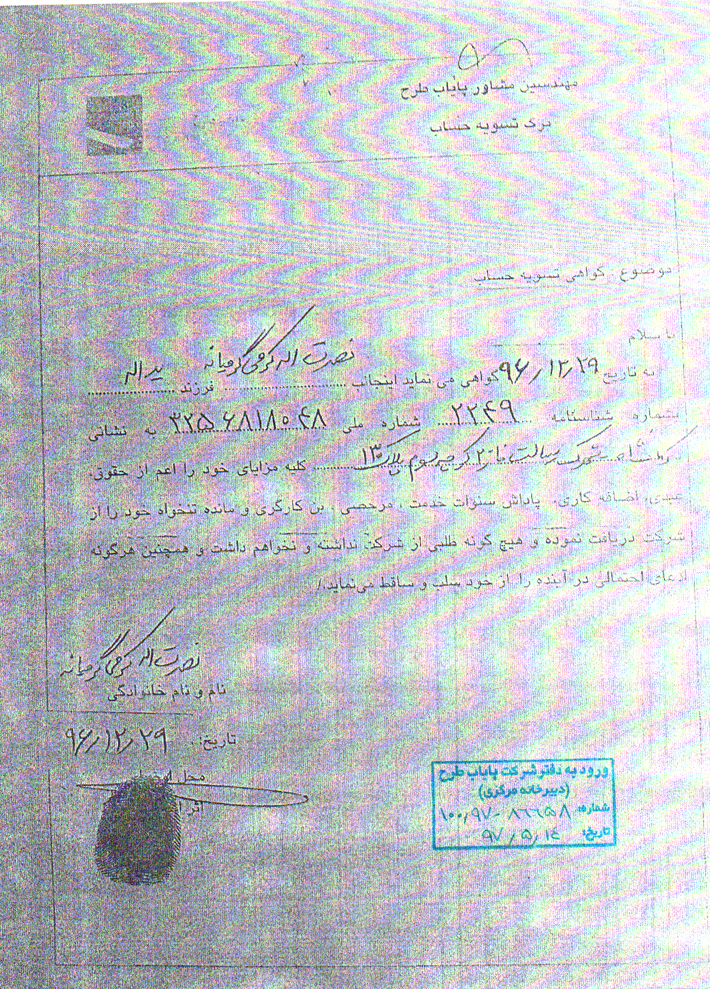 مهندسین مشاور پایاب طرح
برگ تسویه حساب
موضوع: گواهی تسویه حساب
با سلام
به تاریخ ۹۶/۱۲/۲۹ گواهی می نماید اینجانب نصرت اله کرمی گرمیانه فرزند ید اله
بشماره شناسنامه ۲۲۴۹ شماره ملی ۳۲۵۶۸۱۸۰۴۸ به نشانی
رسالت فاز ۲ کوچه سوم پلاک ۱۳ کلیه مزایای خود را اعم از حقوق،
عیدی، اضافه کاری، پاداش سنوات خدمت، مرخصی، بن کارگری و مانده تنخواه خود را از
شرکت دریافت نموده و هیچ گونه طلبی از شرکت نداشته و نخواهم داشت و همچنین هرگونه
ادعای احتمالی در آینده را از خود سلب و ساقط می‌نماید./
نصرت اله کرمی گرمیانه
نام و نام خانوادگی
تاریخ: ۹۶/۱۲/۲۹
محل امضاء
اثر
ورود به دفتر شرکت پایاب طرح
(دبیرخانه مرکزی)
شماره: ۱۰۰/۹۷-۸۶۶۵۸
تاریخ: ۹۷/۵/۱۴